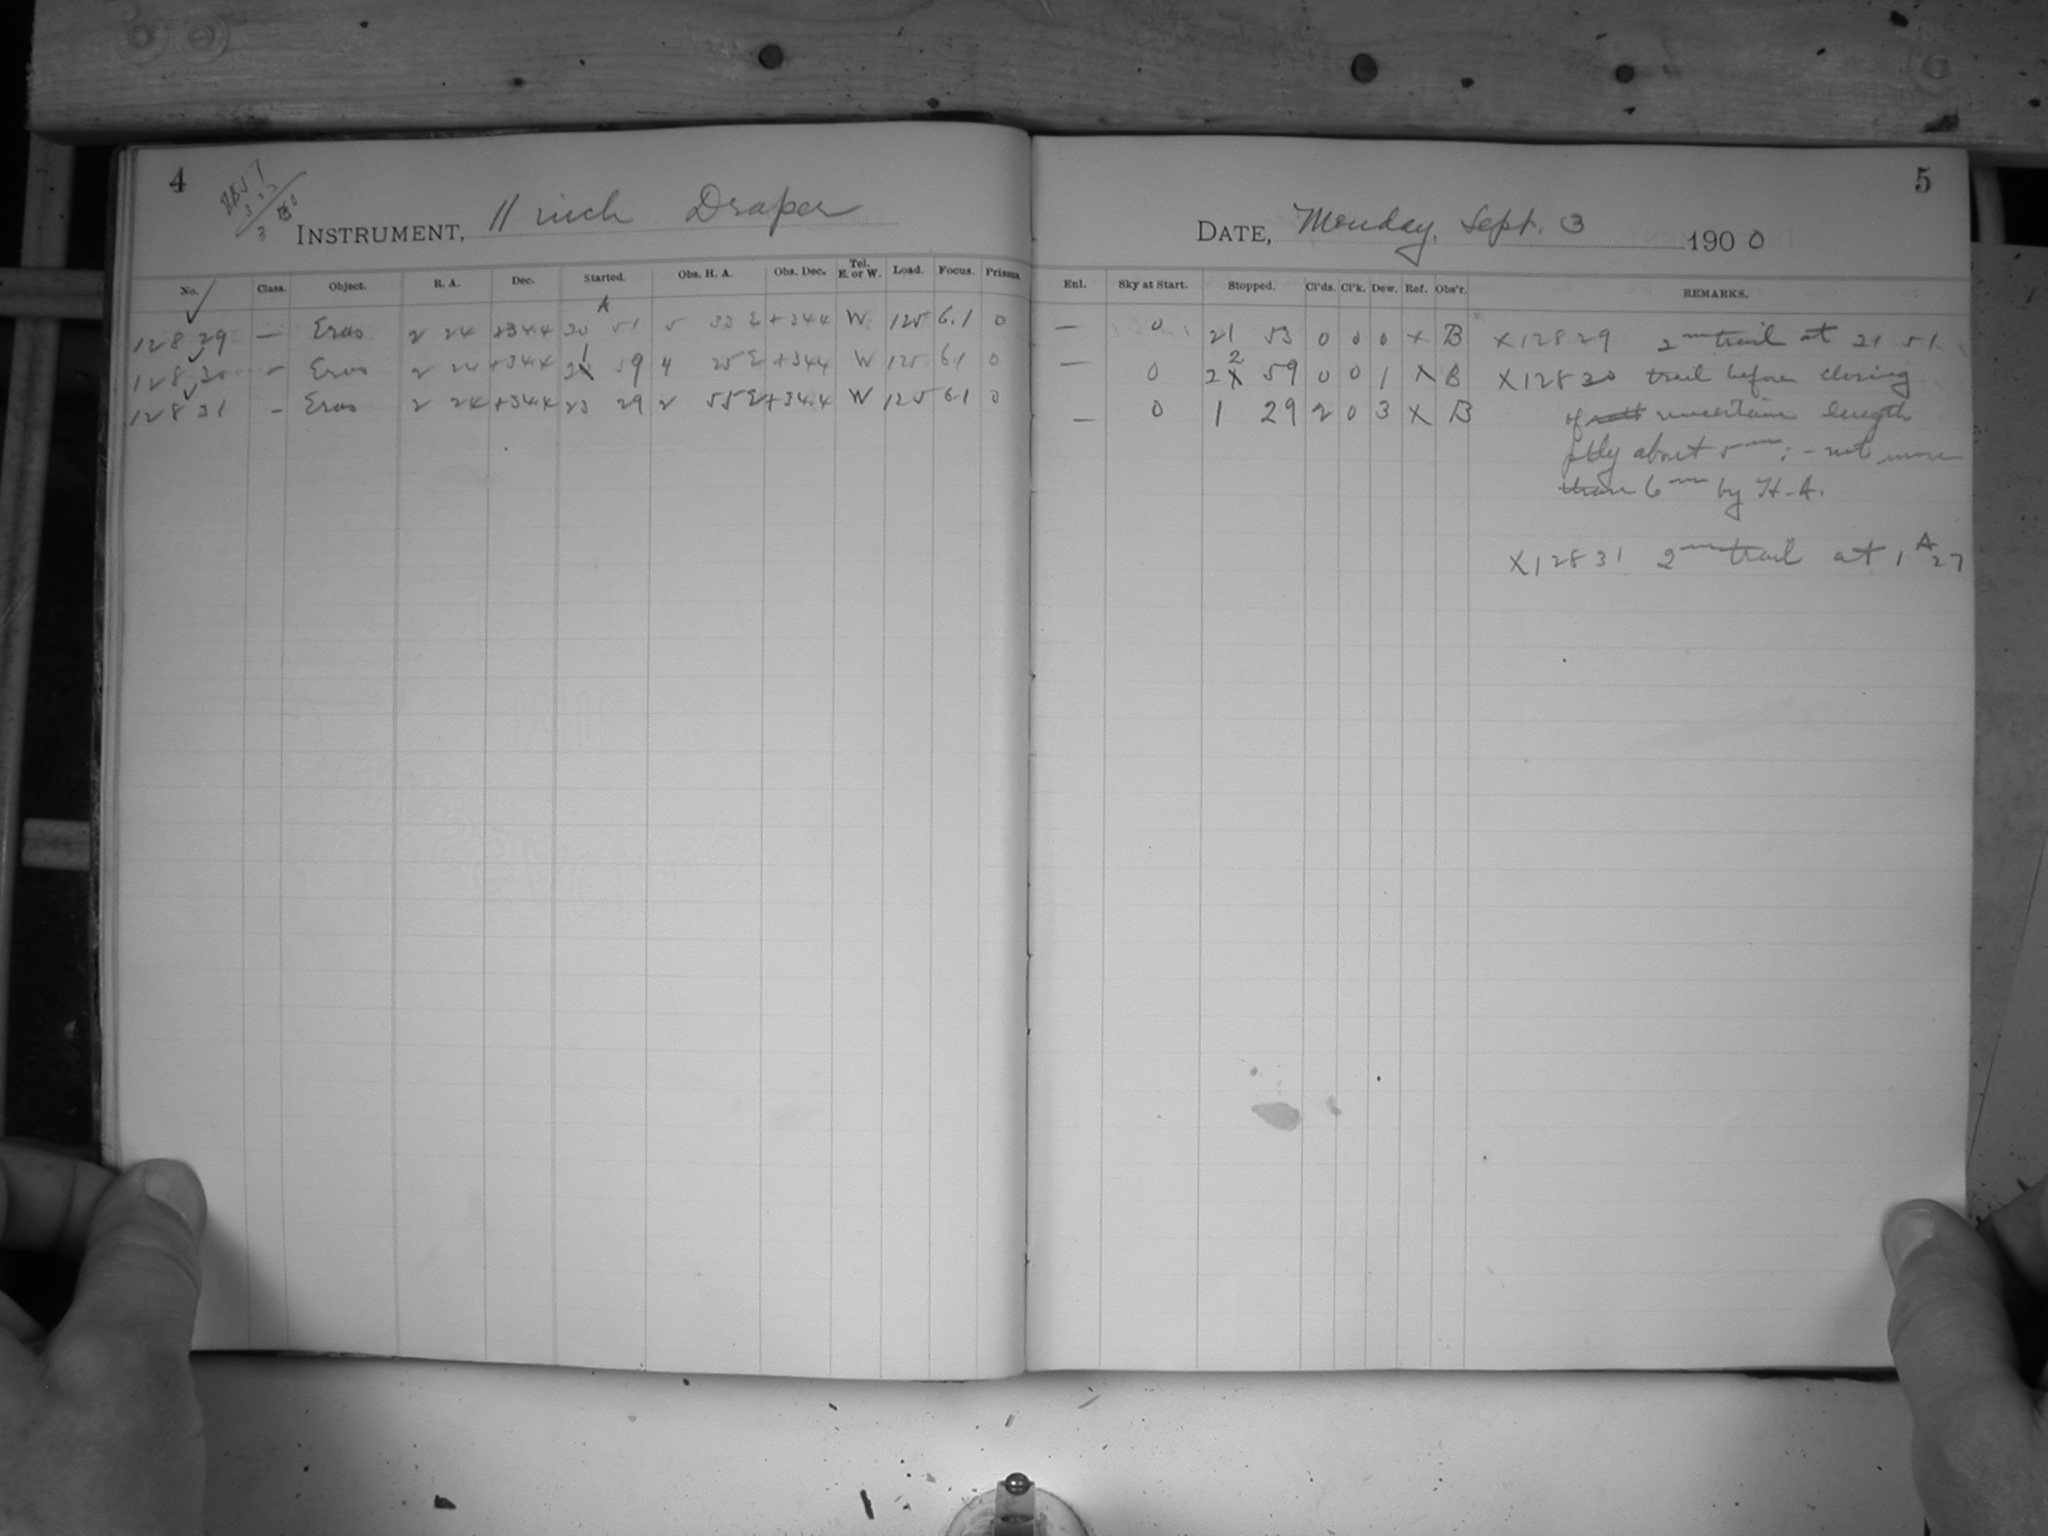 4
INSTRUMENT, 11 inch Draper
No. Class. Object. R. A. Dec. Started. Obs. H. A. Obs. Dec. Tel. E. or W. Load. Focus. Prisms.
12829 — Eros 2 24 +34.4 20 51 5 33 E +34.4 W 125 6.1 0
12830 - Eros 2 24 +34.4 21 59 4 25 E +34.4 W 125 6.1 0
12831 - Eros 2 24 +34.4 23 29 2 55 E +34.4 W 125 6.1 0
5
DATE, Monday, Sept. 3 1900
Enl. Sky at Start. Stopped. Cl'ds. Cl'k. Dew. Ref. Obs'r. REMARKS.
— 0 21 53 0 0 0 X B X12829 2m trail at 21 51
— 0 22 59 0 0 1 X B X12830 trail before closing
— 0 1 29 2 0 3 X B of uncertain length
pbly about 5m; - not more
than 6m by H.A.
X12831 2m trail at 1 27